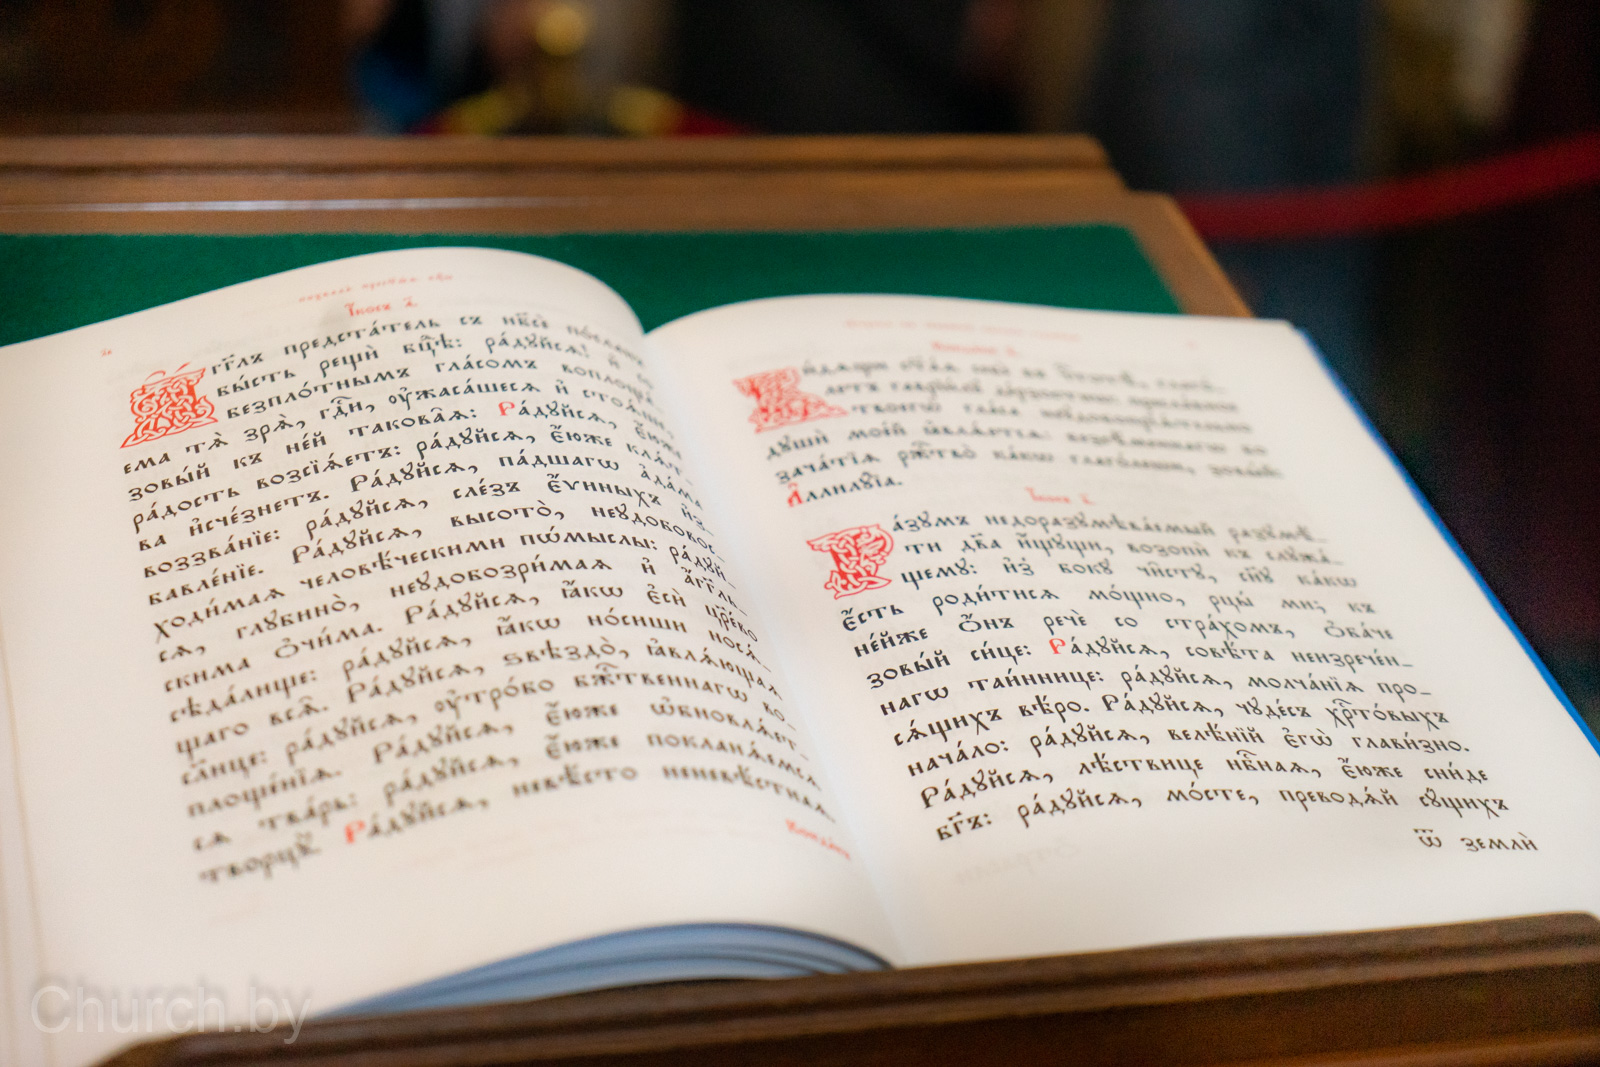 І҆́косъ а҃.
А҆́гг҃лъ предста́тель съ нб҃сѐ по́сланъ
бы́сть рещѝ бц҃ѣ: ра́дꙋйсѧ! и҆ со
безпло́тнымъ гла́сомъ воплоща́-
ема тѧ̀ зрѧ̀, гд҇и, ᲂу҆жаса́шесѧ и҆ стоѧ́ше,
зовы́й къ не́й такова̑ѧ: Ра́дꙋйсѧ, є҆́юже
ра́дость возсїѧ́етъ: ра́дꙋйсѧ, є҆́юже клѧ́т-
ва и҆счє́знетъ. Ра́дꙋйсѧ, па́дшагѡ а҆да́ма
воззва́нїе: ра́дꙋйсѧ, сле́зъ є҆́ѵиныхъ и҆з-
бавле́нїе. Ра́дꙋйсѧ, высото̀, неꙋдобовос-
ходи́маѧ человѣ́ческими по́мыслы: ра́дꙋй-
сѧ, глꙋбино̀, неꙋдобозри́маѧ и҆ а҆́гг҃ль-
скима ѻ҆чи́ма. Ра́дꙋйсѧ, ꙗ҆́кѡ є҆сѝ цр҃е́во
сѣда́лище: ра́дꙋйсѧ, ꙗ҆́кѡ но́сиши носѧ́-
щаго всѧ̑. Ра́дꙋйсѧ, ѕвѣздо̀, ꙗ҆влѧ́ющаѧ
сл҃нце: ра́дꙋйсѧ, ᲂу҆тро́бо бж҇твеннагѡ во-
площе́нїѧ. Ра́дꙋйсѧ, є҆́юже ѡ҆бновлѧ́ет-
сѧ тва́рь: ра́дꙋйсѧ, є҆́юже покланѧ́емсѧ
творцꙋ̀. Ра́дꙋйсѧ, невѣ́сто неневѣ́стнаѧ.
Конда́къ
дꙋшѝ мое́й
зача́тїѧ ржⷭ҇тво̀ ка́кѡ глаго́леши, зовы́й:
А҆ллилꙋ́їа.
Ра́зꙋмъ недоразꙋмѣва́емый разꙋмѣ́-
ти дв҃а и҆́щꙋщи, возопѝ къ слꙋжа́-
щемꙋ: и҆з̾ бокꙋ̀ чи̑стꙋ, сн҃ꙋ ка́кѡ
є҆́сть роди́тисѧ мо́щно, рцы́ ми; къ
не́йже ѻ҆́нъ речѐ со стра́хомъ, ѻ҆ба́че
зовы́й си́це: Ра́дꙋйсѧ, совѣ́та неизрече́н-
нагѡ таи́ннице: ра́дꙋйсѧ, молча́нїѧ про-
сѧ́щихъ вѣ́ро. Ра́дꙋйсѧ, чꙋде́съ хрⷭ҇то́выхъ
нача́ло: ра́дꙋйсѧ, велѣ́нїй є҆гѡ̀ глави́зно.
Ра́дꙋйсѧ, лѣ́ствице нбⷭ҇наѧ, є҆́юже сни́де
бг҃ъ: ра́дꙋйсѧ, мо́сте, преводѧ́й сꙋ́щихъ
ѿ землѝ
Church.by